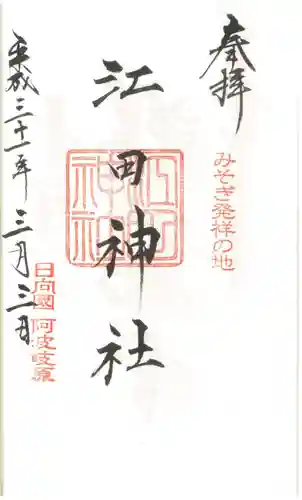 奉拝
みそぎ発祥の地
江田神社
江田神社
日向國 阿波岐原
平成三十一年三月三日